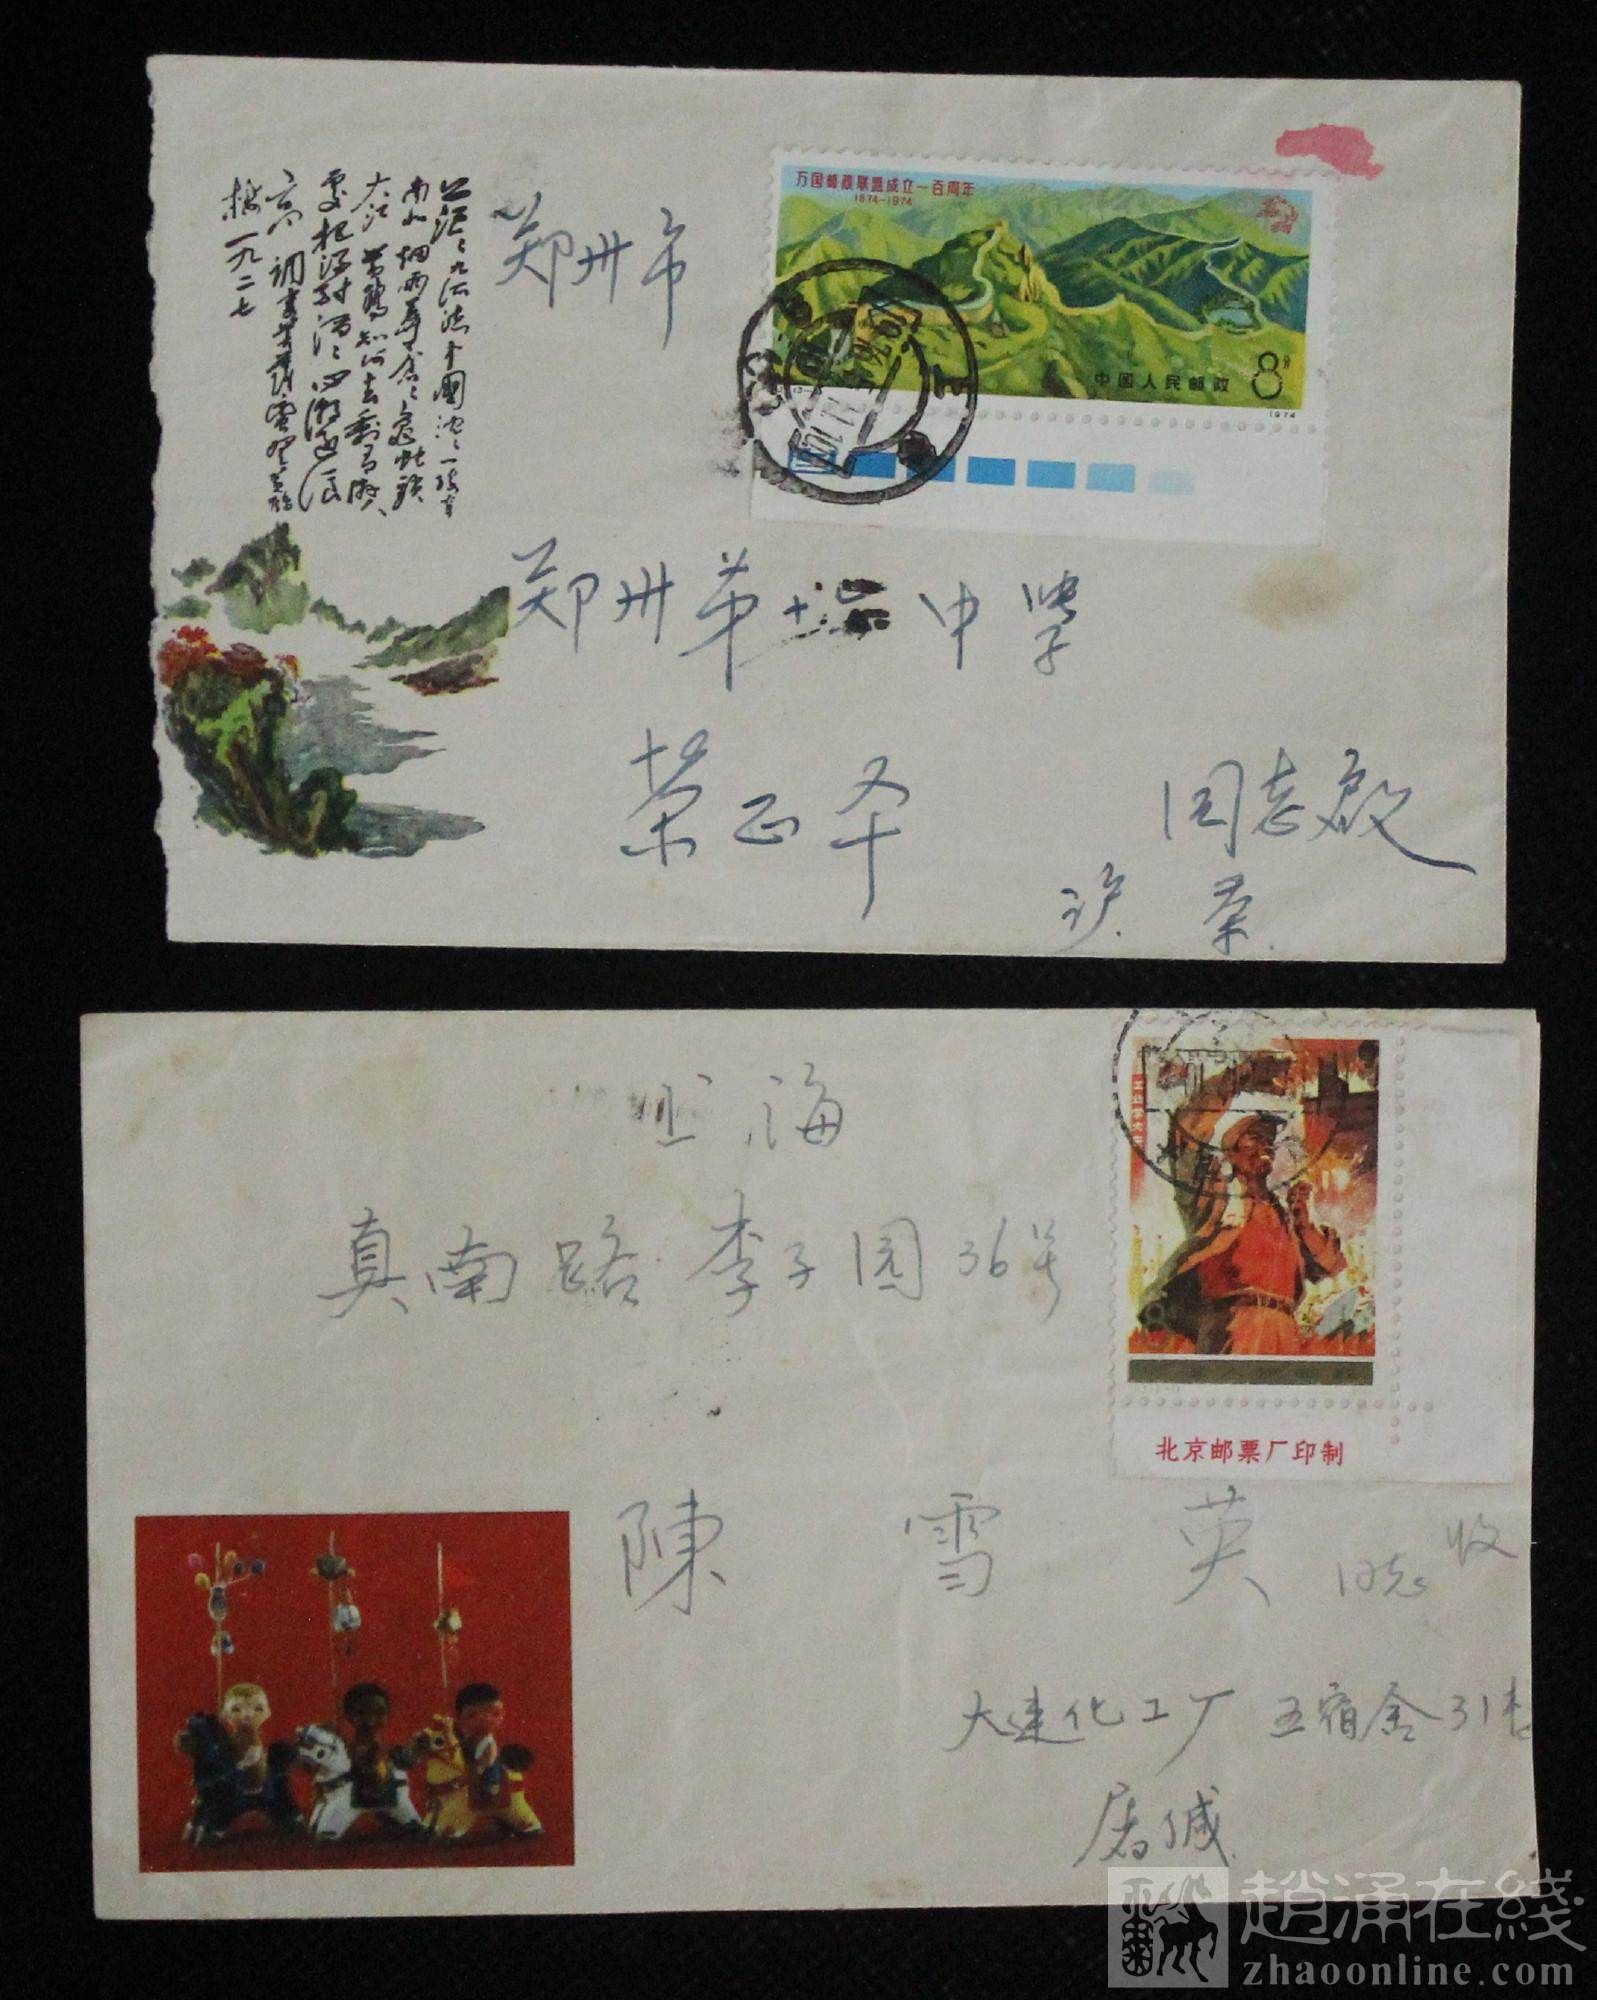 茫茫九派流中國沈沈一綫穿
南北烟雨莽蒼蒼龜蛇鎖
大江 黄鶴知何去剩有游人
處把酒酎滔滔心潮逐浪
高 調寄菩薩蠻登黄鶴
樓一九二七
万国邮政联盟成立一百周年
1874-1974
8分
中国人民邮政
1974
郑州市
郑州第十 中学
荣正 同志启
沪 蔡
上海
真南路李子园36号
陳雪英 同志 收
大连化工厂 五宿舍31
屠
北京邮票厂印制
趙涌在綫
zhaoonline.com